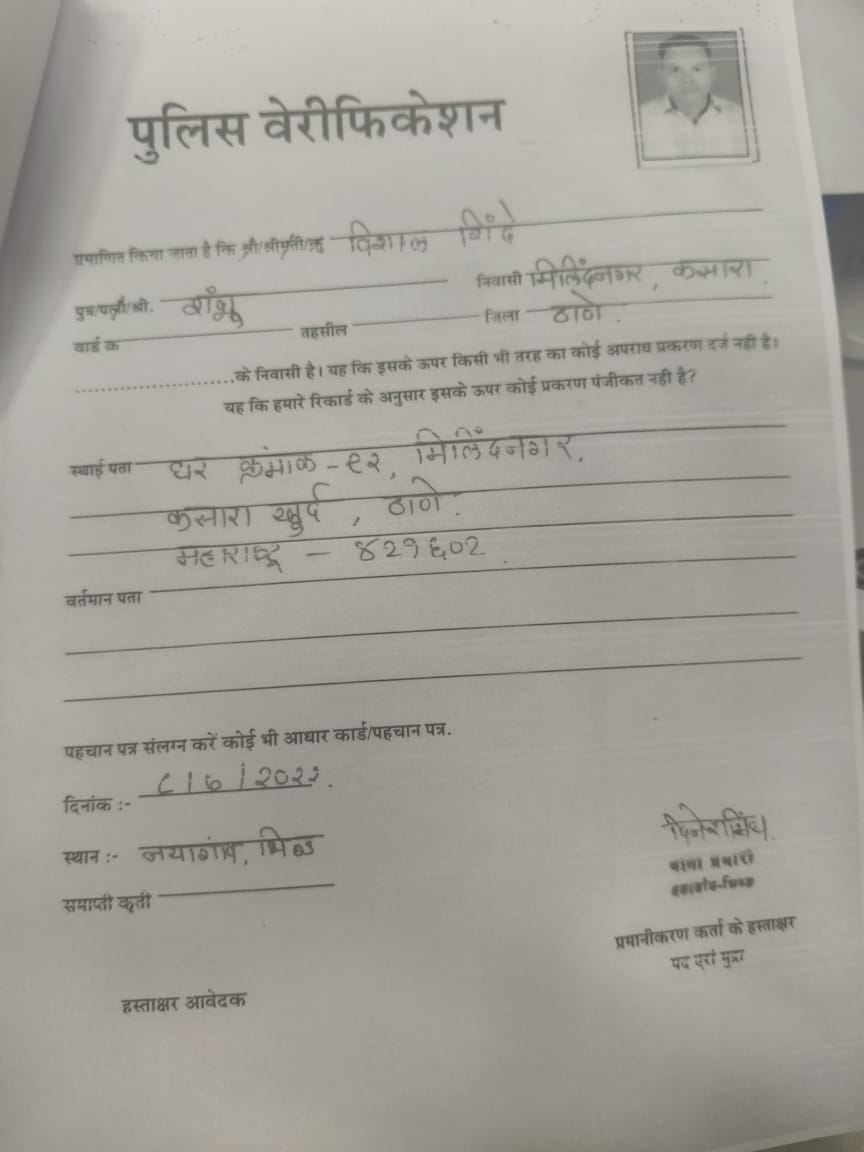 पुलिस वेरीफिकेशन
प्रमाणित किया जाता है कि श्री/श्रीमती/कु विशाल शिंदे
पुत्र/पत्नी/श्री. शंभू निवासी मिलिंदनगर, कसारा.
वार्ड क्र तहसील जिला ठाणे.
........................के निवासी है। यह कि इसके ऊपर किसी भी तरह का कोई अपराध प्रकरण दर्ज नही है।
यह कि हमारे रिकार्ड के अनुसार इसके ऊपर कोई प्रकरण पंजीकत नही है?
स्थाई पता घर क्रमांक - १२, मिलिंदनगर,
कसारा खुर्द, ठाणे.
महाराष्ट्र - ४२१६०२.
वर्तमान पता
पहचान पत्र संलग्न करें कोई भी आधार कार्ड/पहचान पत्र.
दिनांक :- ८/७/२०२२.
स्थान :-
समाप्ती कृती
थाना प्रभारी
प्रमानीकरण कर्ता के हस्ताक्षर
पद एरां मुद्रा
हस्ताक्षर आवेदक